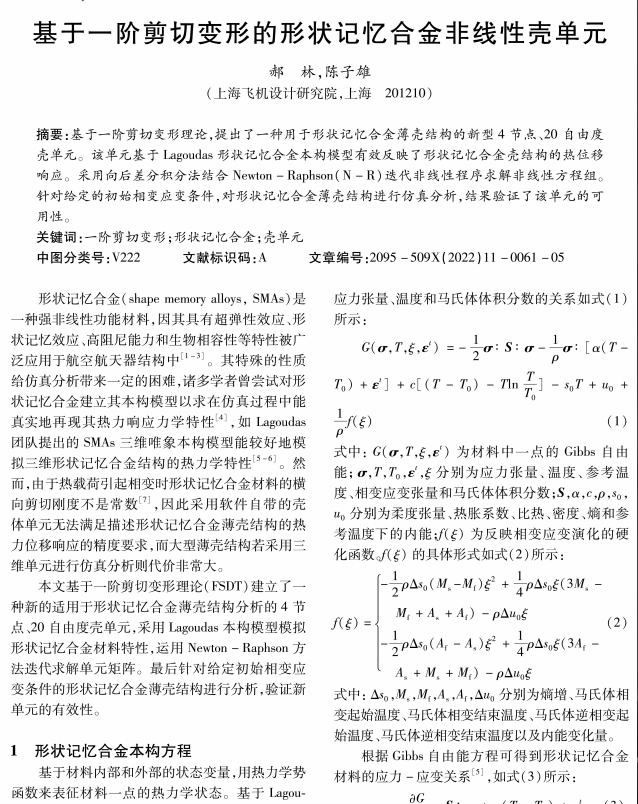 基于一阶剪切变形的形状记忆合金非线性壳单元
郝　林,陈子雄
(上海飞机设计研究院,上海　201210)
摘要:基于一阶剪切变形理论,提出了一种用于形状记忆合金薄壳结构的新型 4 节点、20 自由度
壳单元。该单元基于 Lagoudas 形状记忆合金本构模型有效反映了形状记忆合金壳结构的热位移
响应。采用向后差分积分法结合 Newton – Raphson(N – R)迭代非线性程序求解非线性方程组。
针对给定的初始相变应变条件,对形状记忆合金薄壳结构进行仿真分析,结果验证了该单元的可
用性。
关键词:一阶剪切变形;形状记忆合金;壳单元
中图分类号:V222　　文献标识码:A　　文章编号:2095 – 509X(2022)11 – 0061 – 05
形状记忆合金(shape memory alloys, SMAs)是
一种强非线性功能材料,因其具有超弹性效应、形
状记忆效应、高阻尼能力和生物相容性等特性被广
泛应用于航空航天器结构中[1–3]。其特殊的性质
给仿真分析带来一定的困难,诸多学者曾尝试对形
状记忆合金建立其本构模型以求在仿真过程中能
真实地再现其热力响应力学特性[4],如 Lagoudas
团队提出的 SMAs 三维唯象本构模型能较好地模
拟三维形状记忆合金结构的热力学特性[5–6]。然
而,由于热载荷引起相变时形状记忆合金材料的横
向剪切刚度不是常数[7],因此采用软件自带的壳
体单元无法满足描述形状记忆合金薄壳结构的热
力位移响应的精度要求,而大型薄壳结构若采用三
维单元进行仿真分析则代价非常大。
本文基于一阶剪切变形理论(FSDT)建立了一
种新的适用于形状记忆合金薄壳结构分析的 4 节
点、20 自由度壳单元,采用 Lagoudas 本构模型模拟
形状记忆合金材料特性,运用 Newton – Raphson 方
法迭代求解单元矩阵。最后针对给定初始相变应
变条件的形状记忆合金薄壳结构进行分析,验证新
单元的有效性。
1　形状记忆合金本构方程
基于材料内部和外部的状态变量,用热力学势
函数来表征材料一点的热力学状态。基于 Lagou-
应力张量、温度和马氏体体积分数的关系如式(1)
所示:
G(σ,T,ξ,εᵗ) = – 1/2 σ: S: σ – 1/ρ σ: [α(T –
T₀) + εᵗ] + c[(T – T₀) – Tln T/T₀] – s₀T + u₀ +
1/ρ f(ξ)　　(1)
式中: G(σ,T,ξ,εᵗ) 为材料中一点的 Gibbs 自由
能; σ,T,T₀,εᵗ,ξ 分别为应力张量、温度、参考温
度、相变应变张量和马氏体体积分数;S,α,c,ρ,s₀,
u₀ 分别为柔度张量、热胀系数、比热、密度、熵和参
考温度下的内能;f(ξ) 为反映相变应变演化的硬
化函数。f(ξ) 的具体形式如式(2)所示:
–1/2 ρΔs₀(Mₛ – M_f)ξ² + 1/4 ρΔs₀ξ(3Mₛ –
M_f + Aₛ + A_f) – ρΔu₀ξ
f(ξ) = {　　(2)
–1/2 ρΔs₀(A_f – Aₛ)ξ² + 1/4 ρΔs₀ξ(3A_f –
Aₛ + Mₛ + M_f) – ρΔu₀ξ
式中: Δs₀,Mₛ,M_f,Aₛ,A_f,Δu₀ 分别为熵增、马氏体相
变起始温度、马氏体相变结束温度、马氏体逆相变起
始温度、马氏体逆相变结束温度以及内能变化量。
根据 Gibbs 自由能方程可得到形状记忆合金
材料的应力 – 应变关系[5],如式(3)所示:
∂G